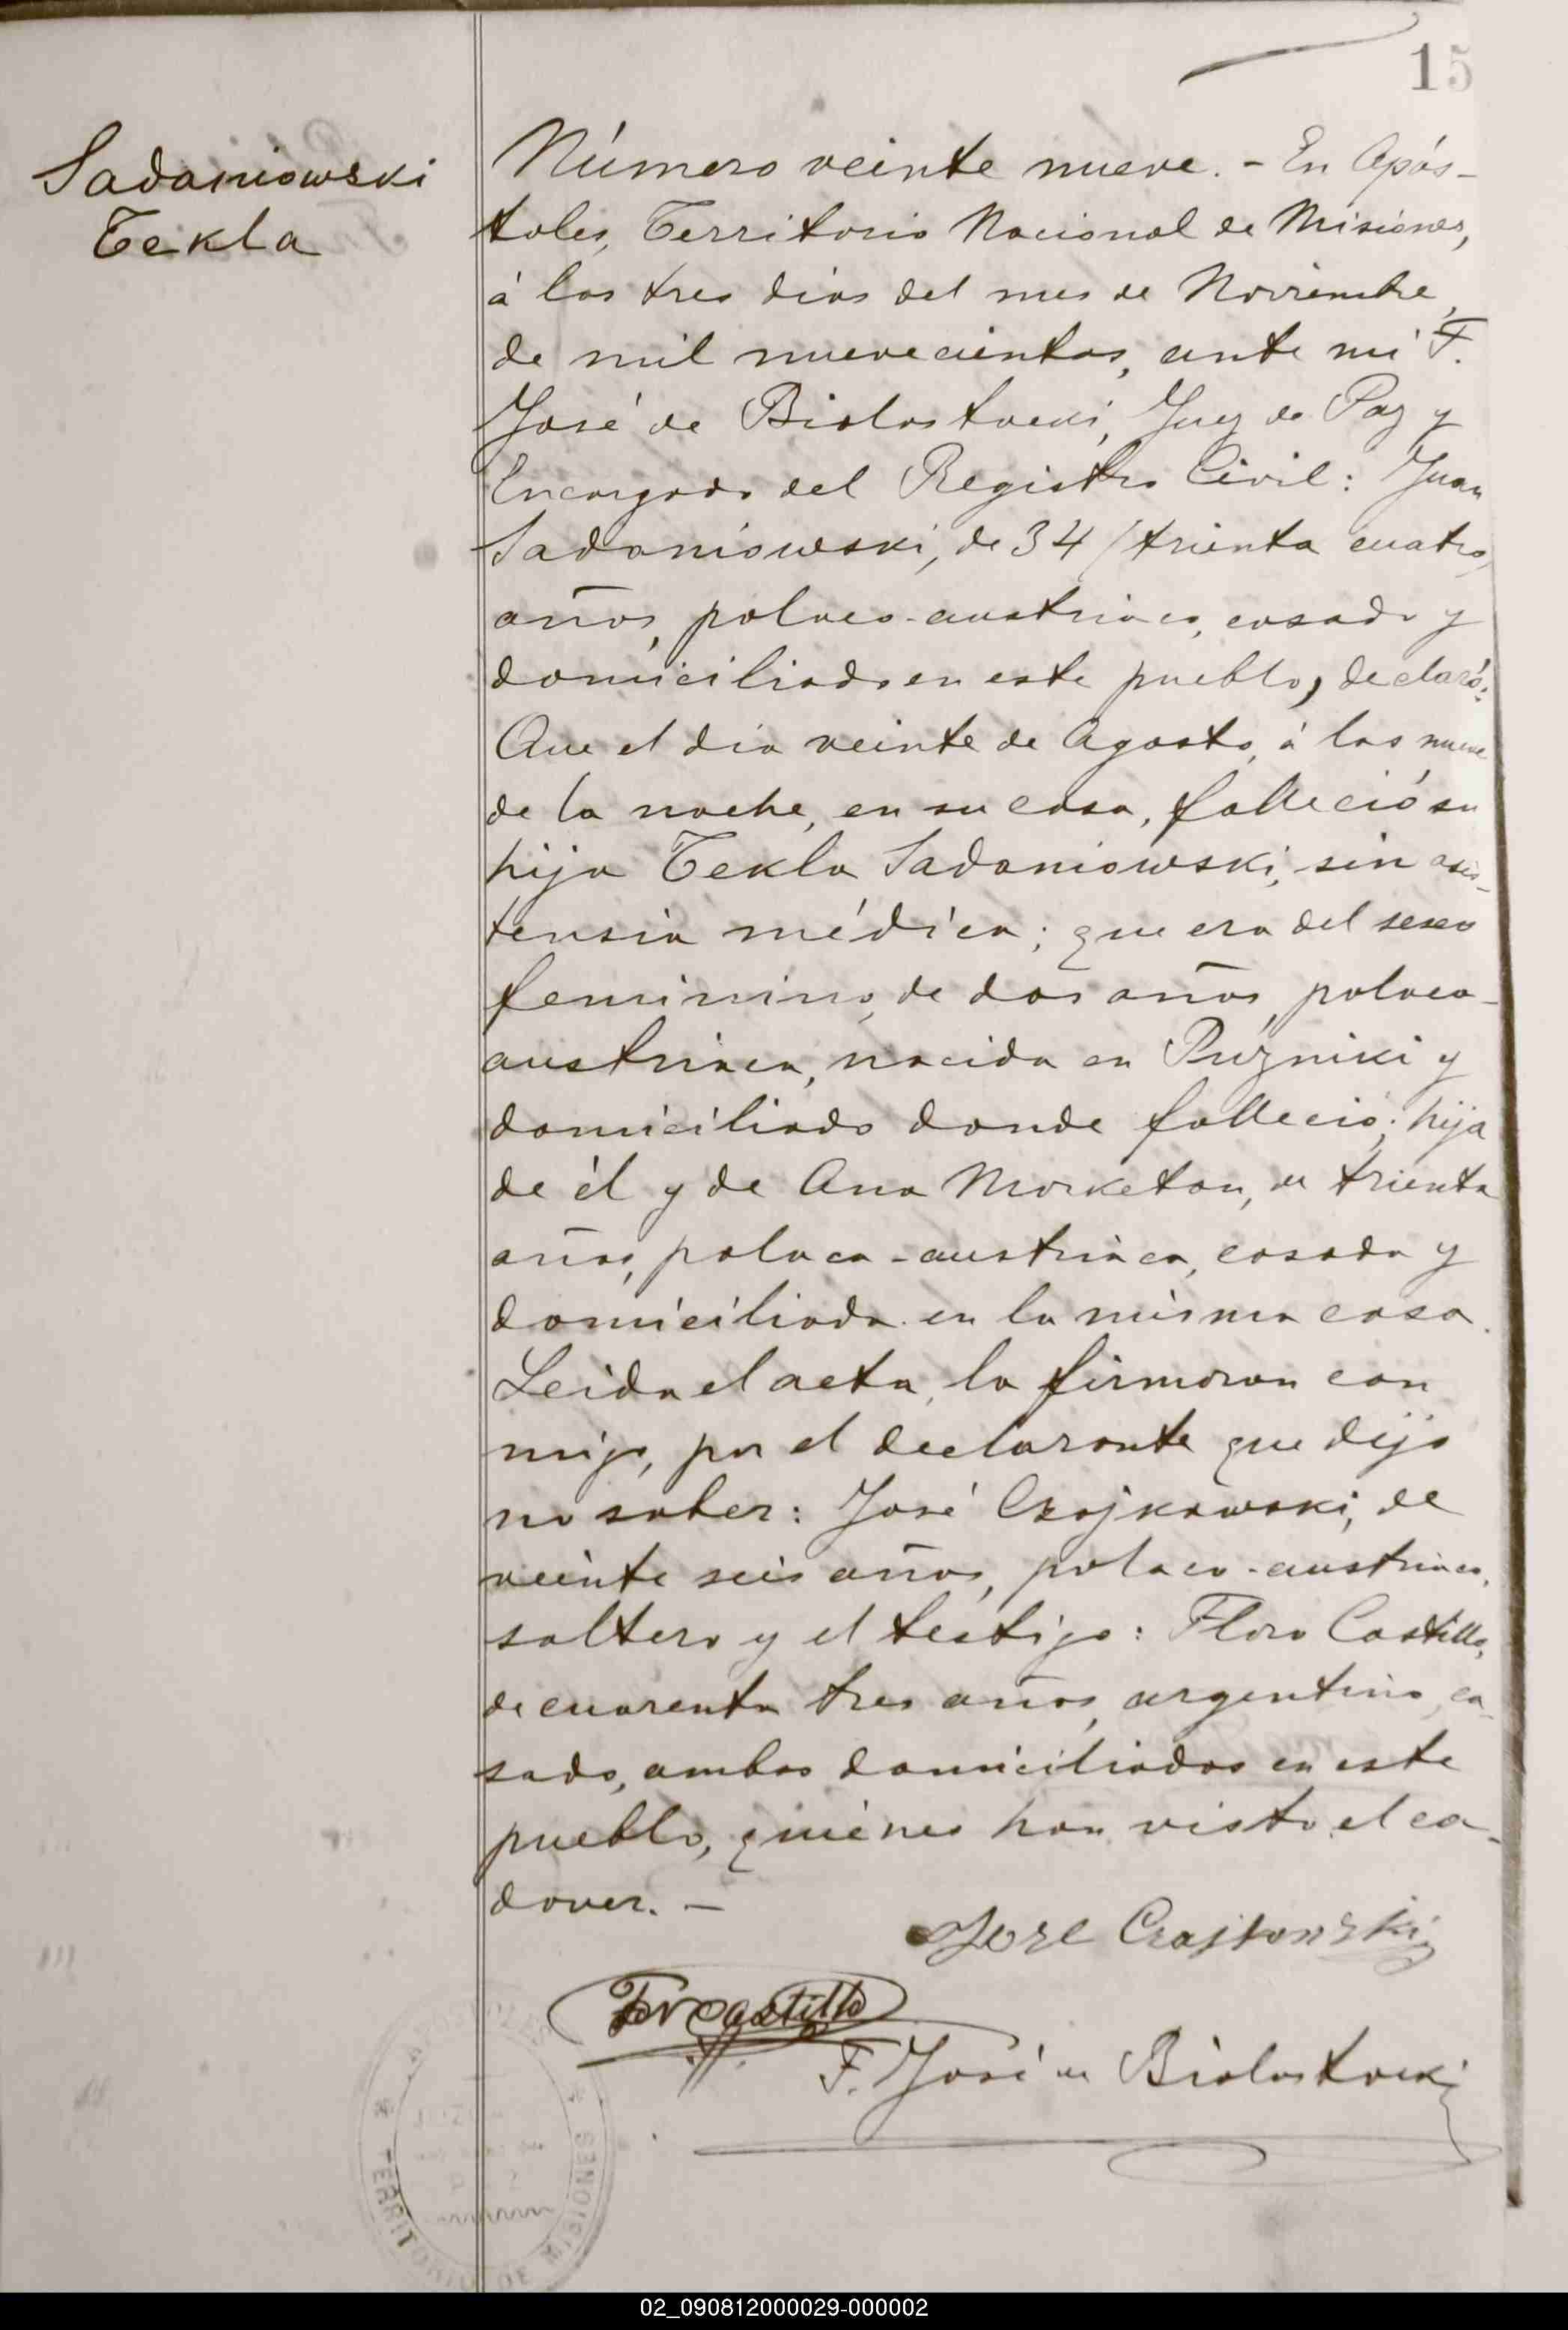 15
Sadaniowski
Tekla
Número veinte nueve. - En Após-
toles, Territorio Nacional de Misiones,
á los tres dias del mes de Noviembre,
de mil nuevecientos, ante mi F.
José de Bialostocki, Juez de Paz y
Encargado del Registro Civil: Juan
Sadaniowski, de 34 / trienta cuatro,
años, polaco-austriaco, casado y
domiciliado en este pueblo, declaró:
Que el dia veinte de Agosto, á las nueve
de la noche, en su casa, falleció su
hija Tekla Sadaniowski, sin asis-
tensia médica; que era del sexo
feminino, de dos años, polaca-
austriaca, nacida en Puzniki y
domiciliado donde falleció; hija
de él y de Ana Marketan, de trienta
años, polaca-austriaca, casada y
domiciliada en la misma casa.
Leida el acta, la firmaron con
migo, por el declarante que dijo
no saber: José Czajkowski, de
veinte seis años, polaco-austriaco,
soltero y el testigo: Floro Castillo,
de cuarenta tres años, argentino, ca-
sado, ambos domiciliados en este
pueblo, quiénes han visto el ca-
daver. -
Castillo
F. José de Bialostocki
APOSTOLES
TERRITORIO DE MISIONES
02_090812000029-000002